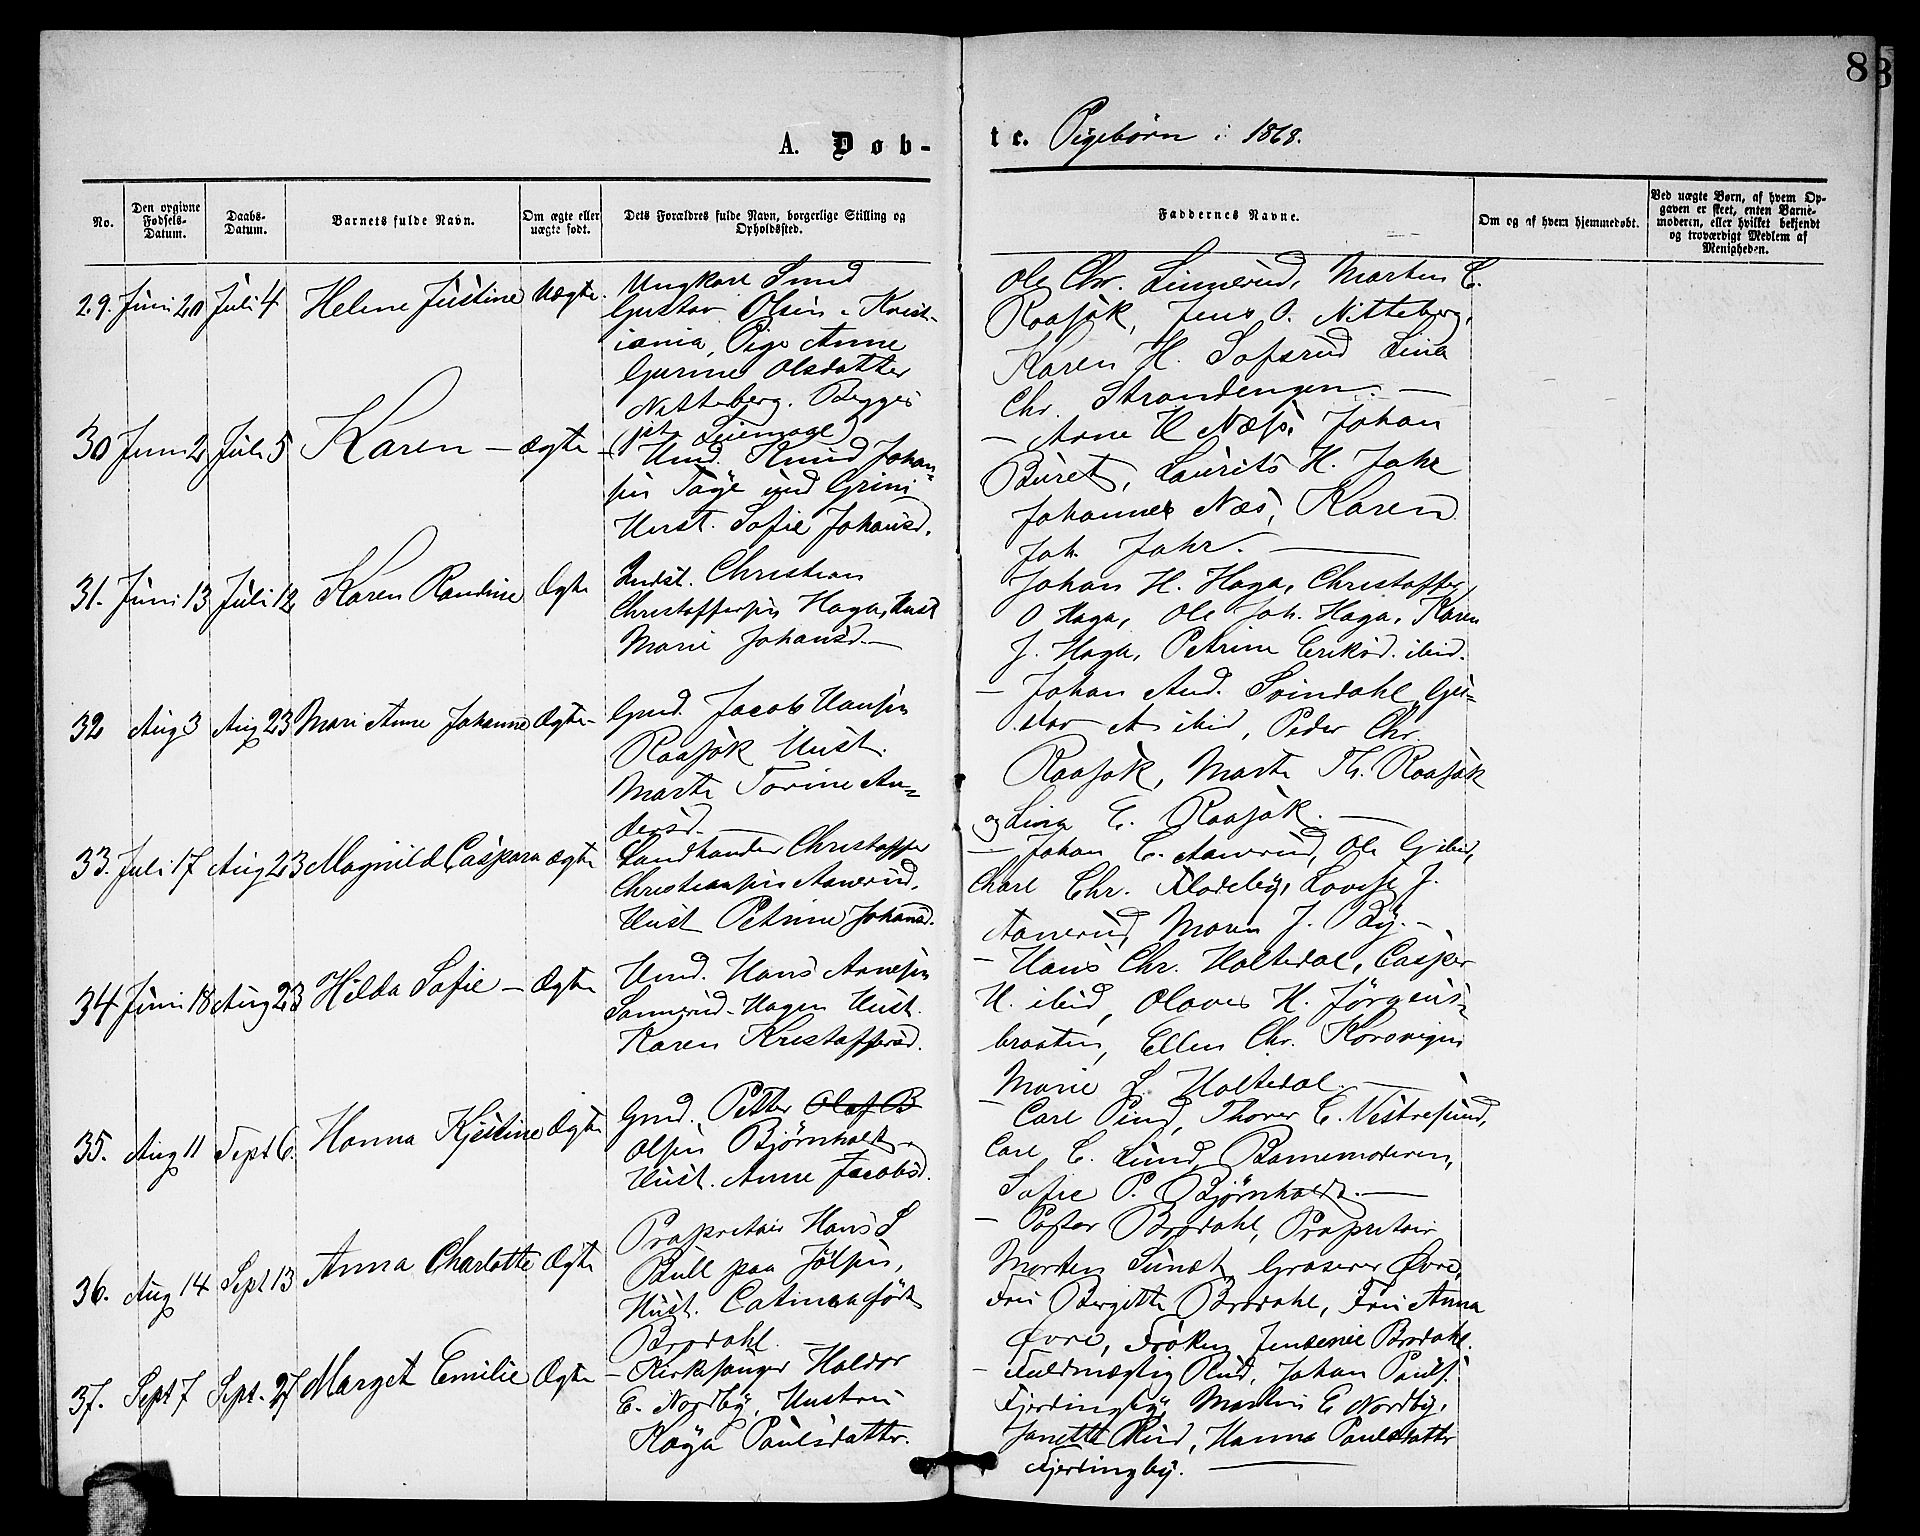 8
A. Døb-
te. Pigebørn i 1868.
No.
Den opgivne Fødsels-Datum.
Daabs-Datum.
Barnets fulde Navn.
Om ægte eller uægte født.
Dets Forældres fulde Navn, borgerlige Stilling og Opholdssted.
Faddernes Navne.
Om og af hvem hjemmedøbt.
Ved uægte Børn, af hvem Opgaven er skeet, enten Barnemoderen, eller hvilket bekjendt og troværdigt Medlem af Menigheden.
29. Juni 20 Juli 4. Helene Justine Uægte.
Ungkarl Smed
Gustav Olsen i Krist-
iania, Pige Anne
Gurine Olsdatter
Nitteberg. Begges
Leiermaal
Ole Chr. Linnerud, Marten C.
Raasok, Jens O. Nitteberg,
Karen H. Sofsrud Lina
Chr. Strandengen. —
30 Juni 2 Juli 5 Karen — Ægte —
Hmd. Knud Johan-
sen Taye und Grini
Hust. Sofie Johansd.
— Arne H Næss, Johan
Buret, Laurits H. Jahr
Johannes Næs, Karen
Joh. Jahr. —
31. Juni 13 Juli 12 Karen Randine Ægte
Indst. Christian
Christoffersen Haga, Hust
Marie Johansd. —
Johan H. Haga, Christoffer
O Haga, Ole Joh. Haga, Karen
J. Haga, Petrine Eriksd. ibid.
32 Aug 3 Aug 23 Mari Anne Johanne Ægte —
Gmd. Jacob Hansen
Raasok Hust.
Marte Torine An-
dersd. —
— Johan And. Svindahl, Gu-
stav A ibid, Peder Chr.
Raasok, Marte Th. Raasok
og Lina E. Raasok. —
33. Juli 17 Aug 23 Magnild Caspara Ægte
Landhandler Christoffer
Christiansen Aanerud,
Hust Petrine Johansd.
— Johan C. Aanerud, Ole G ibid,
Charl Chr. Flateby, Lovise J.
Aanerud, Maren J. By. —
34 Juni 18 Aug 23 Hilda Sofie — Ægte
Hmd. Hans Arnesen
Sannerud-Hagen Hust.
Karen Kristoffersd.
— Hans Chr. Holtedal, Casper
H. ibid, Olaves H. Jørgens-
braaten, Ellen Chr. Korsvigen
Marie L Holtedal. —
35. Aug 11 Sept 6. Hanna Kjestine Ægte
Gmd. Petter Olaf B
Olsen Bjørnholt
Hust. Anne Jacobsd.
— Carl Pind, Thorer C. Vestresund,
Carl C. Sund, Barnemoderen,
Sofie P. Bjørnholt. —
36. Aug 14 Sept 13 Anna Charlotte Ægte
Proprietair Hans S
Bull paa Jølsen,
Hust. Catinca født
Brodahl.
— Pastor Brodahl, Proprietair
Morten Sunæt, Groserer Øvre,
Fru Bergitte Brodahl, Fru Anna
Øvre, Frøken Jensenie Brodahl.
37. Sept 7 Sept. 27 Marget Emilie Ægte
— Kirkesanger Haldor
E. Nordby, Hustru
Kaya Paulsdatter.
— Fuldmægtig Rud, Johan Pauls.
Fjerdingby, Martin E Nordby,
Janette Rud, Hanna Paulsdatter
Fjerdingby. —